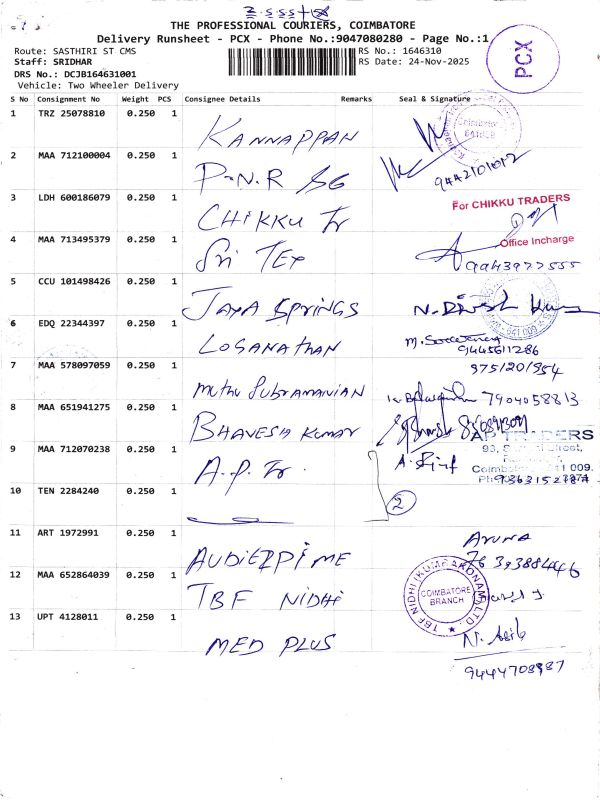 THE PROFESSIONAL COURIERS, COIMBATORE
Delivery Runsheet - PCX - Phone No.:9047080280 - Page No.:1
Route: SASTHIRI ST CMS
RS No.: 1646310
Staff: SRIDHAR
RS Date: 24-Nov-2025
DRS No.: DCJB164631001
Vehicle: Two Wheeler Delivery
PCX
S No Consignment No Weight PCS Consignee Details Remarks Seal & Signature
1 TRZ 25078810 0.250 1 KANNAPPAN
2 MAA 712100004 0.250 1 P.N.R SG
9442101012
3 LDH 600186079 0.250 1 CHIKKU Tr
For CHIKKU TRADERS
Office Incharge
4 MAA 713495379 0.250 1 Sri TEX
9943977555
5 CCU 101498426 0.250 1 JAYA SPRINGS
6 EDQ 22344397 0.250 1 LOGANATHAN
9445611286
9751201954
7 MAA 578097059 0.250 1 MUTHU SUBRAMANIAN
7904058813
8 MAA 651941275 0.250 1 BHAVESH KUMAR
AP TRADERS
9 MAA 712070238 0.250 1 A.P. Tr.
641 009.
2
10 TEN 2284240 0.250 1
11 ART 1972991 0.250 1 AUDIERPIME
ARUNA
12 MAA 652864039 0.250 1 TBF NIDHI
TBF NIDHI (KUMBAKONAM) LTD.
COIMBATORE
BRANCH
13 UPT 4128011 0.250 1 MED PLUS